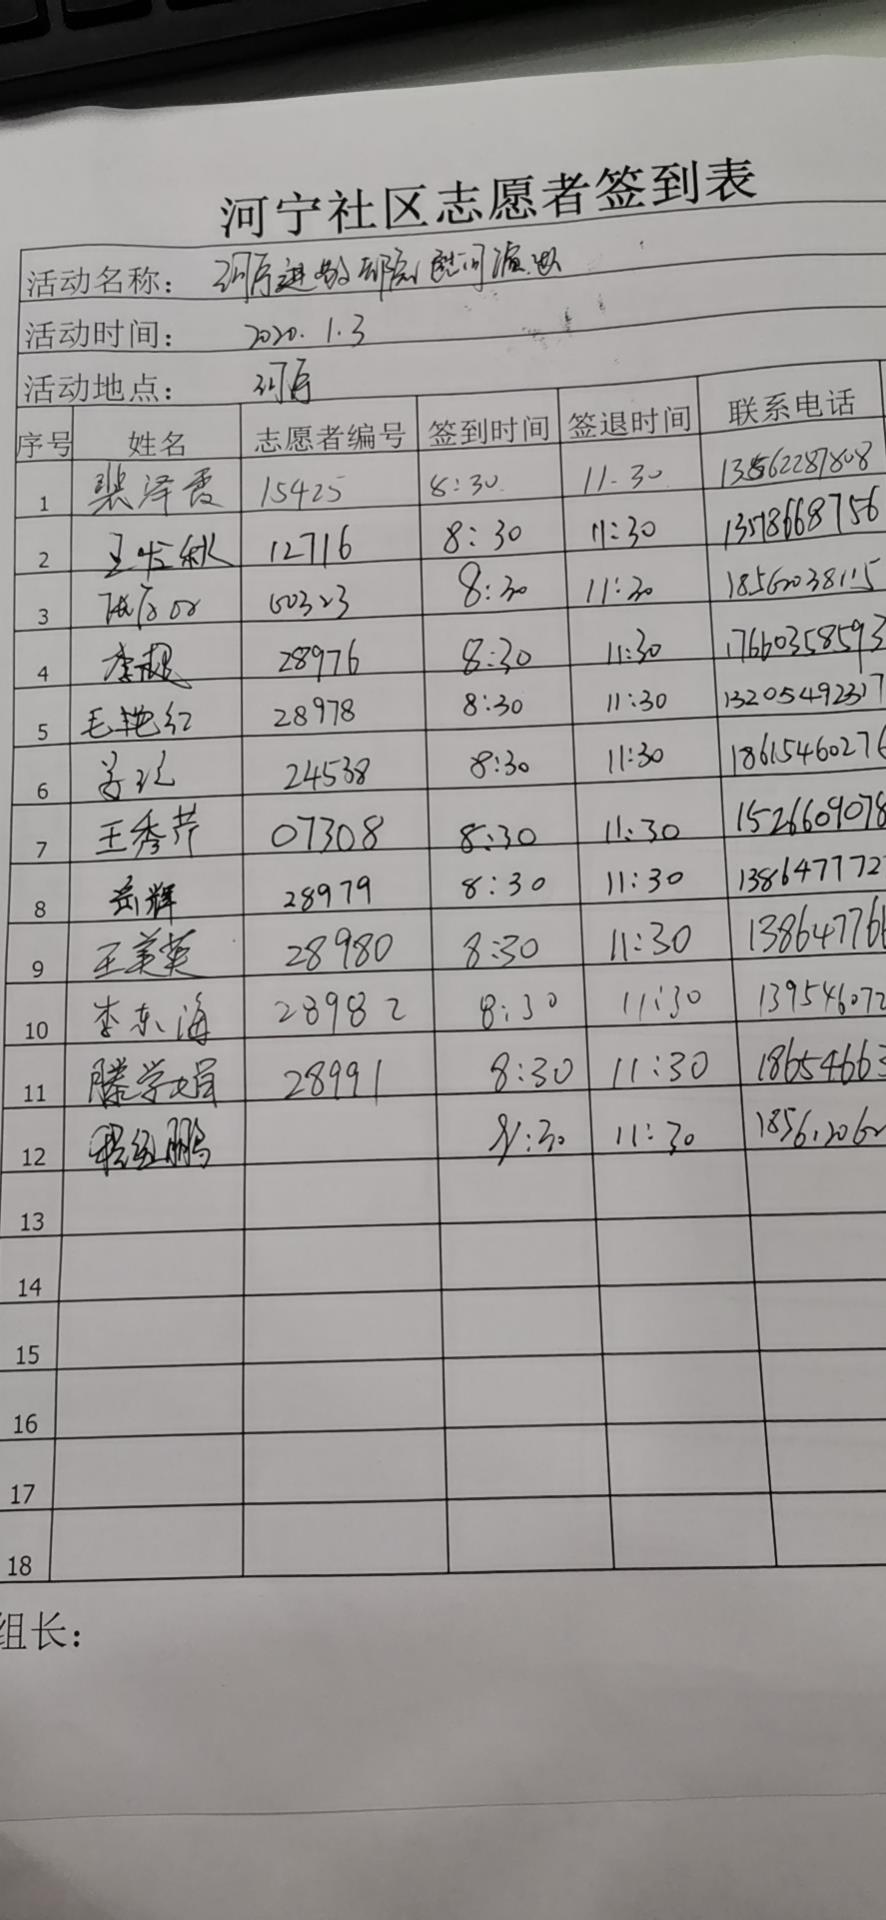 河宁社区志愿者签到表
活动名称： 河宁进敬老院慰问演出
活动时间： 2020.1.3
活动地点： 河宁
序号 姓名 志愿者编号 签到时间 签退时间 联系电话
1 裴泽霞 15425 8:30 11:30 13562287808
2 12716 8:30 11:30
3 00323 8:30 11:30 18562038115
4 28976 8:30 11:30 17660358593
5 毛艳红 28978 8:30 11:30 13205492317
6 24538 8:30 11:30 18615460276
7 王秀芹 07308 8:30 11:30 1526609078
8 岳辉 28979 8:30 11:30 138647772
9 王美英 28980 8:30 11:30 138647766
10 李东海 28982 8:30 11:30 139546072
11 滕学娟 28991 8:30 11:30 18654663
12 8:30 11:30
13
14
15
16
17
18
组长：